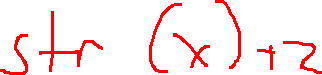 str (x)+2